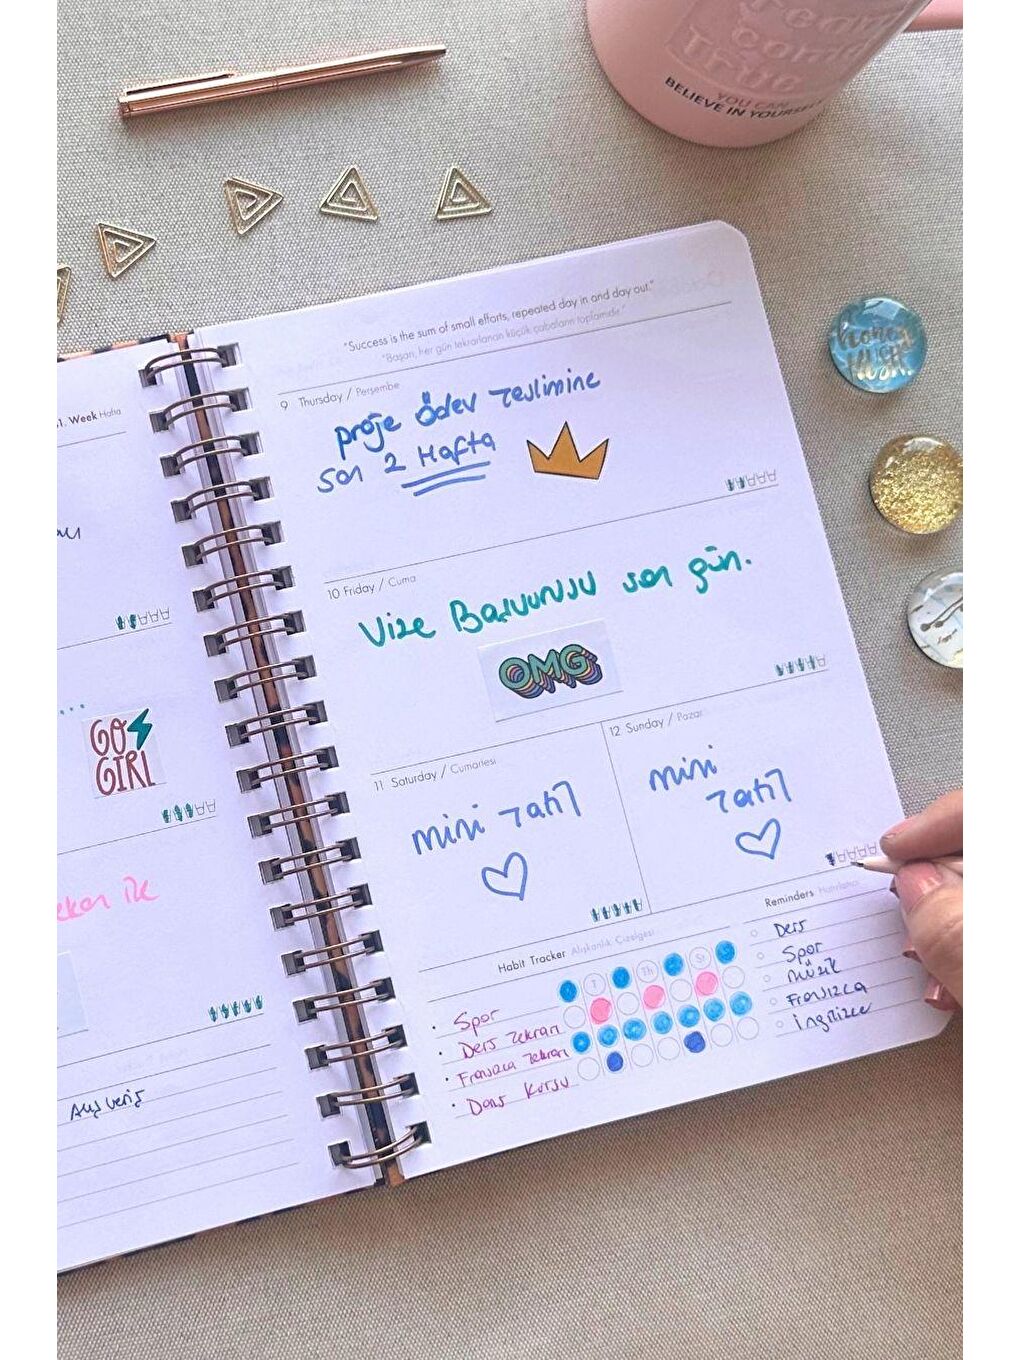 YOU CAN
BELIEVE IN YOURSELF
"Success is the sum of small efforts, repeated day in and day out."
"Başarı, her gün tekrarlanan küçük çabaların toplamıdır."
Week Hafta
9 Thursday / Perşembe
proje ödev Teslimine
son 2 Hafta
10 Friday / Cuma
Vize Başvurusu son gün.
OMG
GO
GIRL
11 Saturday / Cumartesi
mini Tatil
12 Sunday / Pazar
mini
Tatil
Alışveriş
Habit Tracker Alışkanlık Çizelgesi
T Th St
• Spor
• Ders Tekrarı
• Fransızca Tekrarı
• Dans Kursu
Reminders
Ders
Spor
müzik
Fransızca
İngilizce